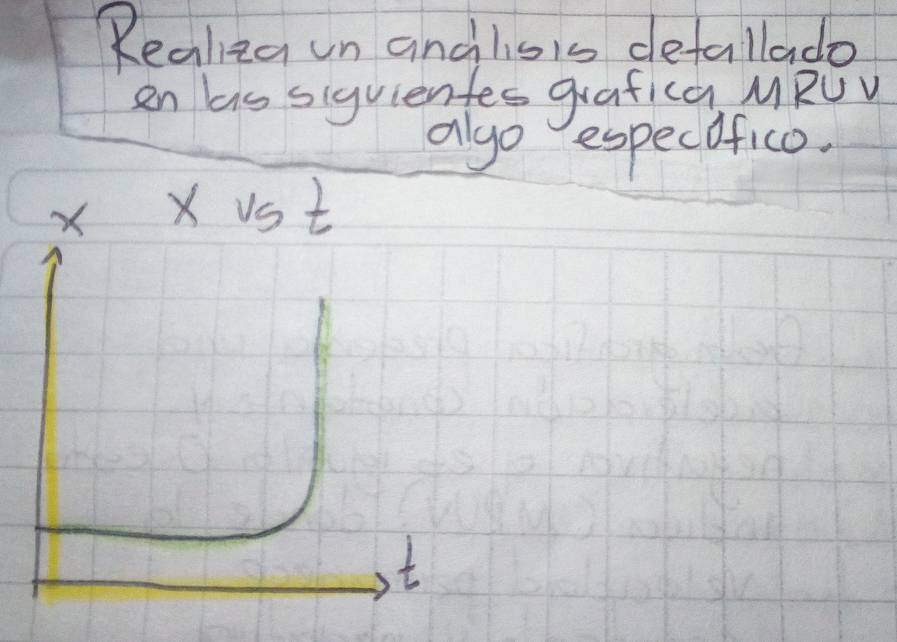 Realiza un análisis detallado
en las siguientes grafica MRUV
algo específico.
X vs t
x
t